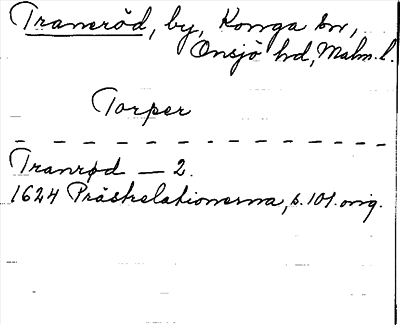 Traneröd, by, Konga sn,
Onsjö hd, Malm. l.
Torper
Tranrød — 2.
1624 Prästrelationerna, s. 101. orig.